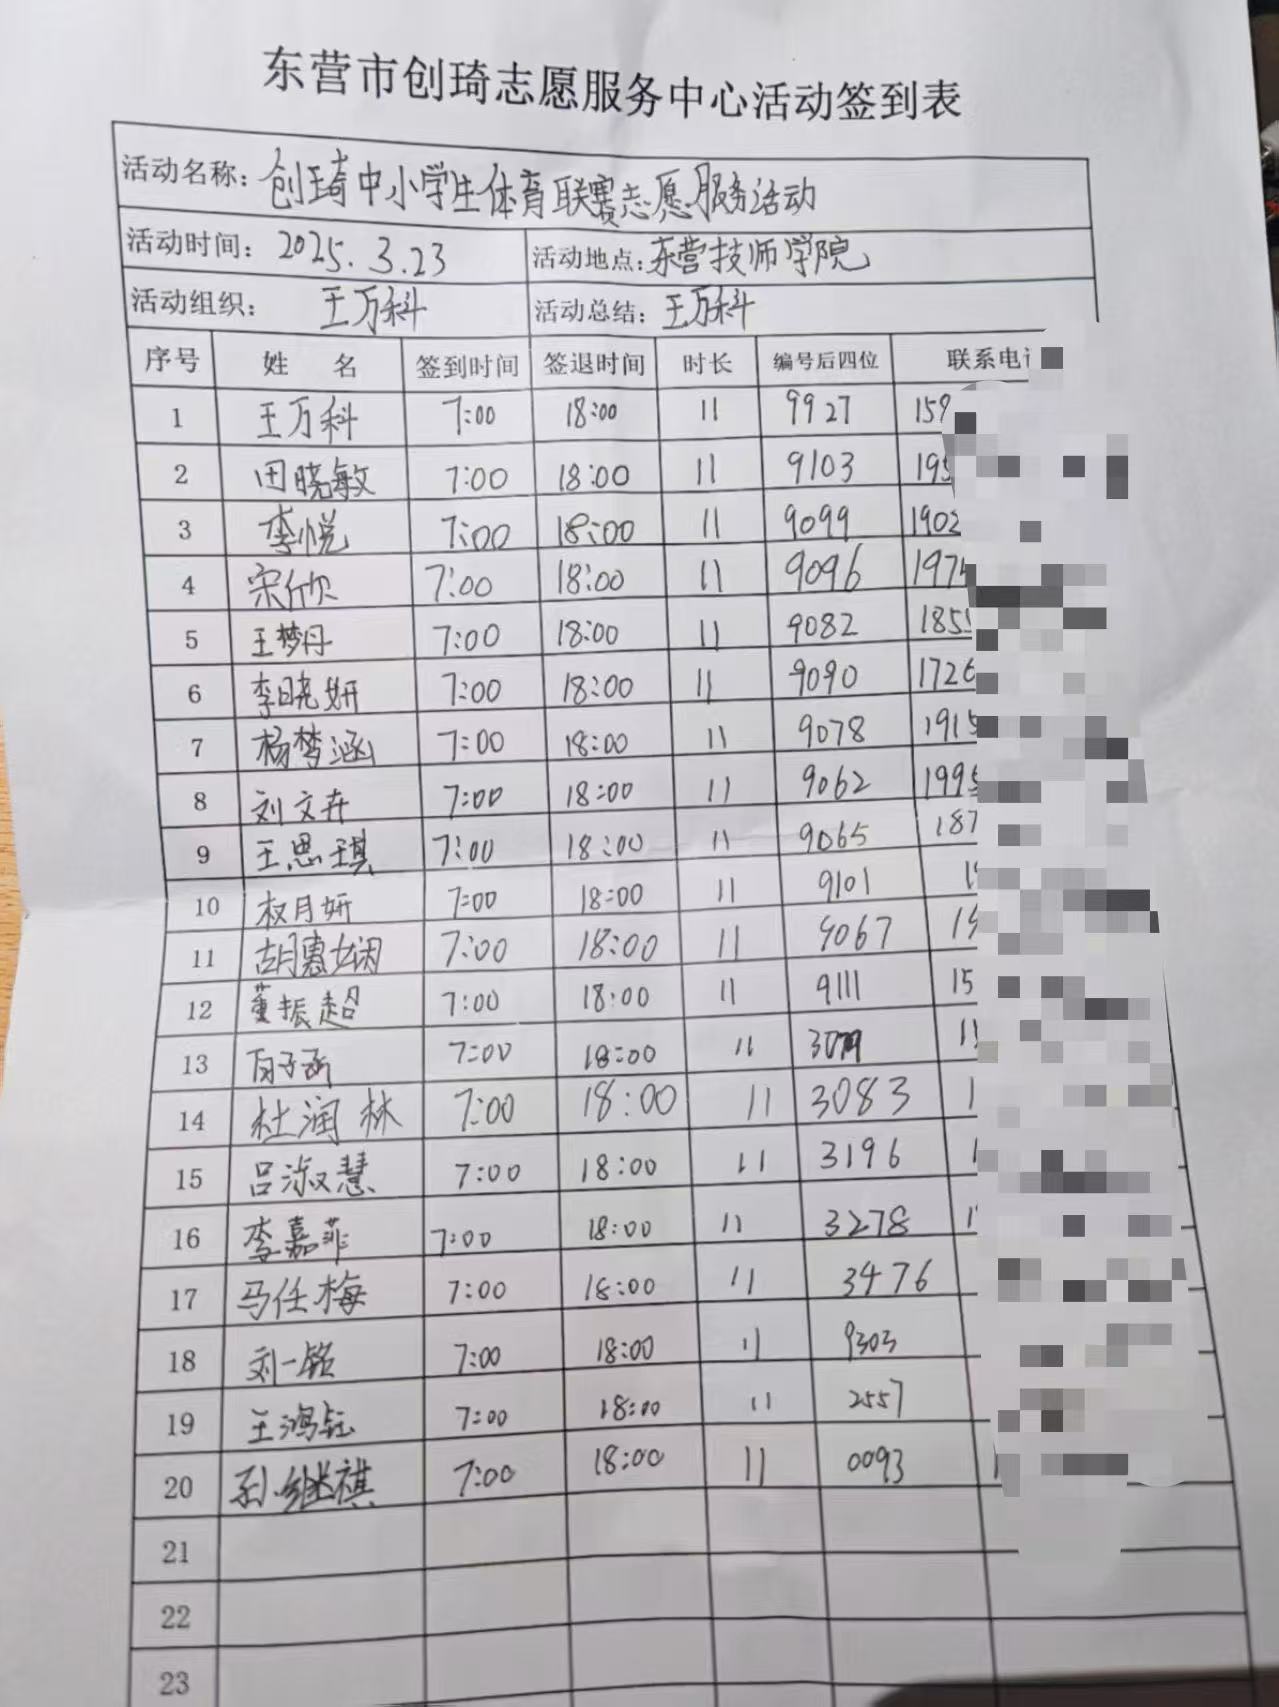 东营市创琦志愿服务中心活动签到表
活动名称：创琦中小学生体育联赛志愿服务活动
活动时间：2025.3.23 活动地点：东营技师学院
活动组织：王万科 活动总结：王万科
序号 姓 名 签到时间 签退时间 时长 编号后四位 联系电
1 王万科 7:00 18:00 11 9927 159
2 田晓敏 7:00 18:00 11 9103 195
3 李悦 7:00 18:00 11 9099 1902
4 宋欣 7:00 18:00 11 9096 197
5 王梦丹 7:00 18:00 11 9082 185
6 李晓妍 7:00 18:00 11 9090 1726
7 杨梦涵 7:00 18:00 11 9078 1915
8 刘文卉 7:00 18:00 11 9062 1995
9 王思琪 7:00 18:00 11 9065 187
10 权月妍 7:00 18:00 11 9101 1
11 胡惠娴 7:00 18:00 11 9067 19
12 董振超 7:00 18:00 11 9111 15
13 7:00 18:00 11 1
14 杜润林 7:00 18:00 11 3083 1
15 吕淑慧 7:00 18:00 11 3196 1
16 李嘉菲 7:00 18:00 11 3278 1
17 马任梅 7:00 18:00 11 3476
18 刘一铭 7:00 18:00 11 9303
19 王鸿钰 7:00 18:00 11 2557
20 孙继祺 7:00 18:00 11 0093 1
21
22
23